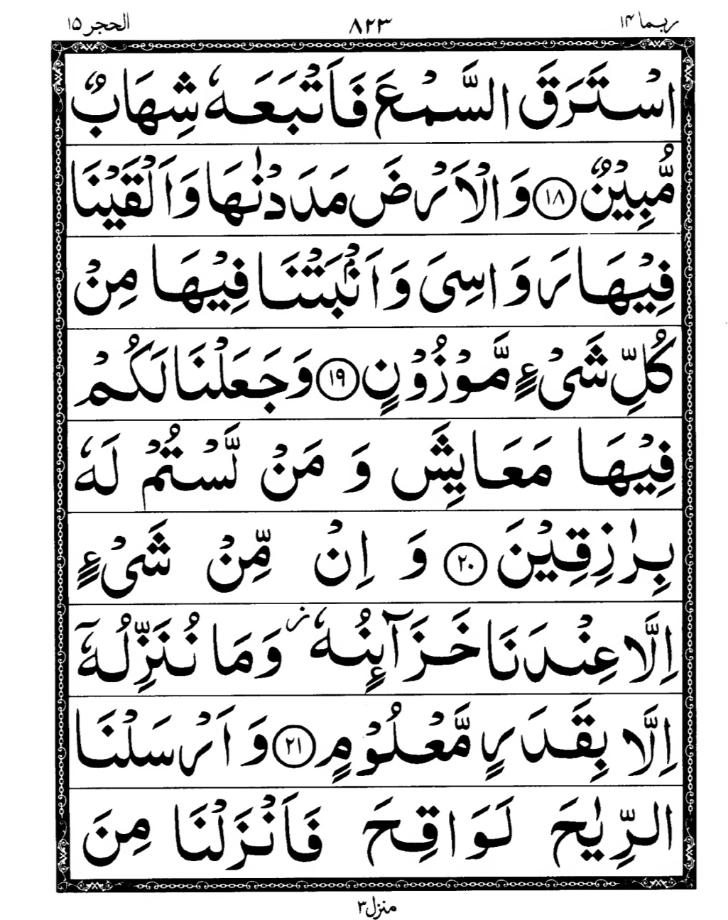 ربما ١٤ ٨٢٣ الحجر ١٥
اسْتَرَقَ السَّمْعَ فَاَتْبَعَهٗ شِهَابٌ
مُّبِيْنٌ ١٨ وَالْاَرْضَ مَدَدْنٰهَا وَاَلْقَيْنَا
فِيْهَا رَوَاسِىَ وَاَنْۢبَتْنَا فِيْهَا مِنْ
كُلِّ شَىْءٍ مَّوْزُوْنٍ ١٩ وَجَعَلْنَا لَكُمْ
فِيْهَا مَعَايِشَ وَ مَنْ لَّسْتُمْ لَهٗ
بِرٰزِقِيْنَ ٢٠ وَ اِنْ مِّنْ شَىْءٍ
اِلَّا عِنْدَنَا خَزَآئِنُهٗ ز وَمَا نُنَزِّلُهٗۤ
اِلَّا بِقَدَرٍ مَّعْلُوْمٍ ٢١ وَاَرْسَلْنَا
الرِّيٰحَ لَوَاقِحَ فَاَنْزَلْنَا مِنَ
منزل ٣